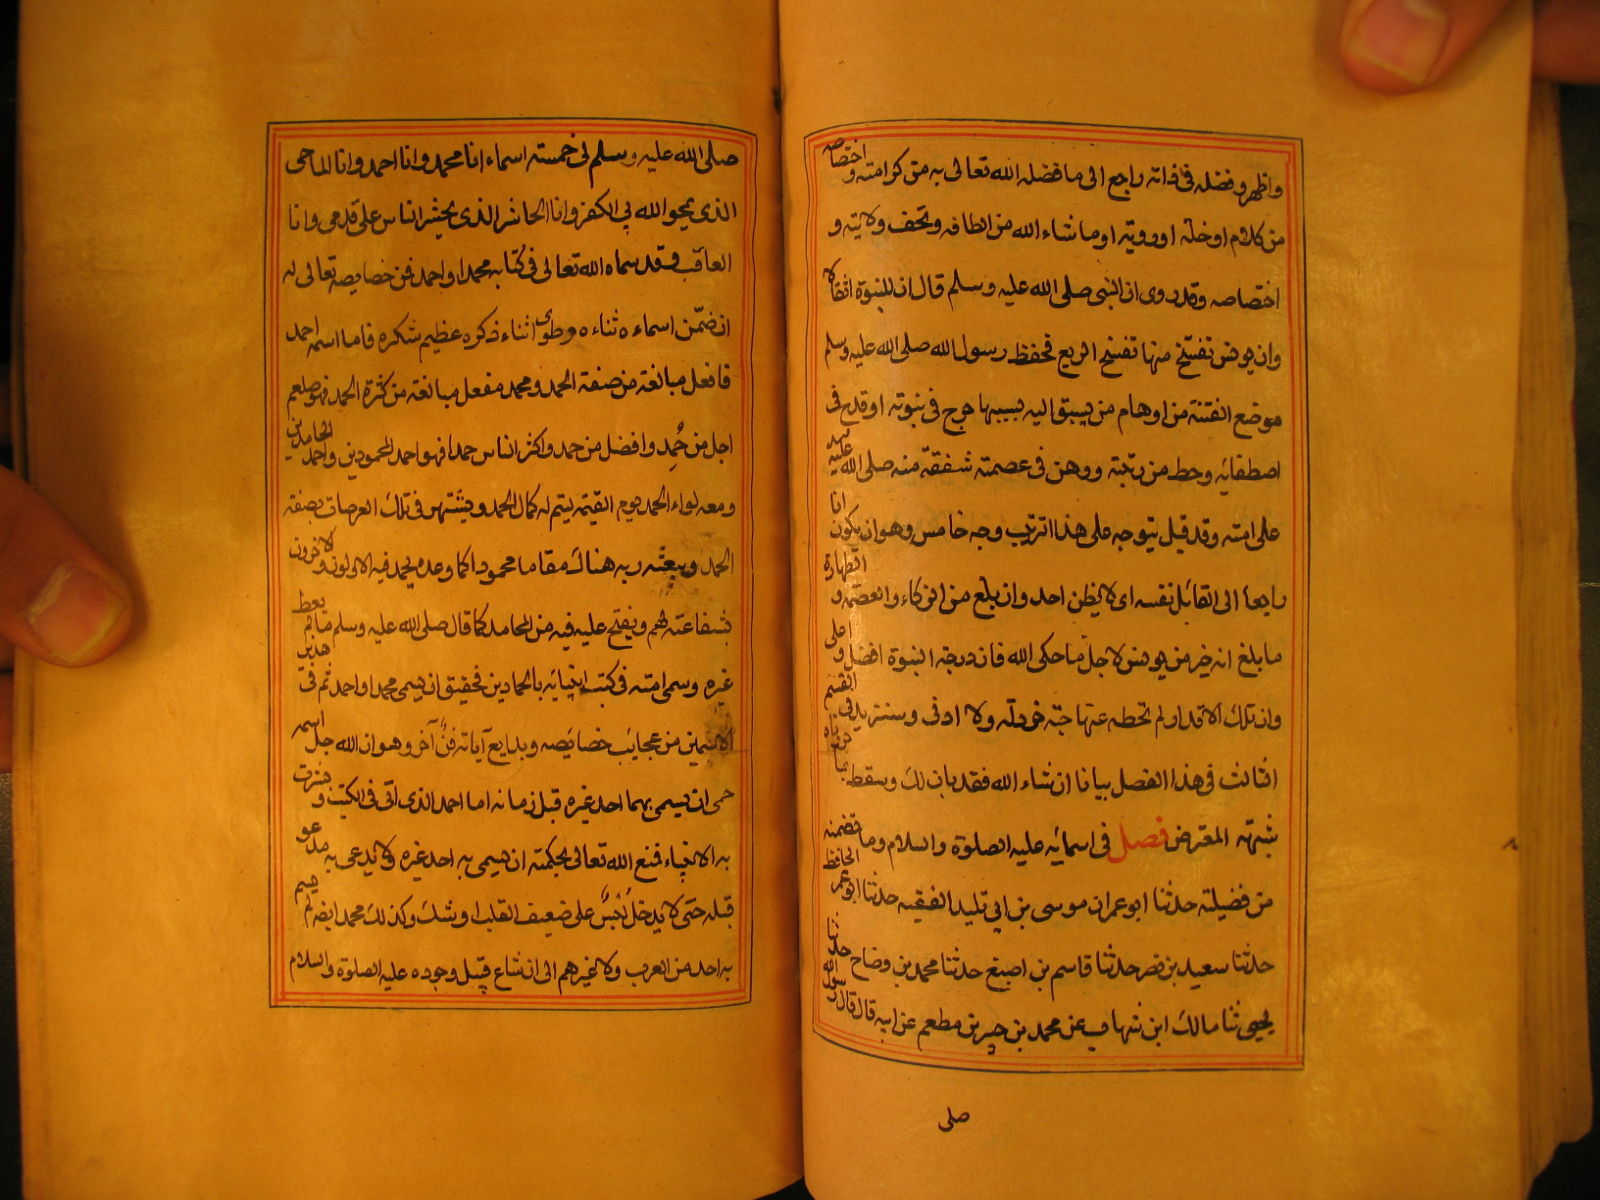 واظهر وفضله فى ذاته راجع الى ما فضله الله تعالى به من كرامته و اختصاصه
من كلام او خلة او روية او ما شاء الله من الطافه وتحف ولايته و
اختصاصه وقد روى ان النبى صلى الله عليه وسلم قال ان للنبوة اثقالا
وان يونس تفسخ منها تفسخ الربع فحفظ رسول الله صلى الله عليه وسلم
موضع الفتنة من اوهام من يسبق اليه بسببها جرح فى نبوته او قدح فى
اصطفايه وحط من رتبته ووهن فى عصمته شفقة منه صلى الله عليه
على امته وقد قيل يتوجه على هذا الترتيب وجه خامس وهو ان يكون انا
راجعا الى القائل نفسه اى لا يظن احد وان بلغ من الزكاء والعصمة و الطهارة
ما بلغ انه خير من يونس لاجل ما حكى الله فان درجة النبوة افضل و اعلى
وان تلك الاقدار لم تحطه عنها حبة خردلة ولا ادنى وسنزيد فى القسم
الثالث فى هذا الفصل بيانا ان شاء الله فقد بان لك وسقط بما
شبهة المعترض فصل فى اسمائه عليه الصلوة والسلام وما تضمنته
من فضيلته حدثنا ابو عمران موسى بن ابى تليد الفقيه حدثنا ابو عمر الحافظ
حدثنا سعيد بن نصر حدثنا قاسم بن اصبغ حدثنا محمد بن وضاح حدثنا
يحيى ثنا مالك ابن شهاب عن محمد بن جبير بن مطعم عن ابيه قال قال رسول الله
صلى
صلى الله عليه وسلم لى خمسة اسماء انا محمد وانا احمد وانا الماحى
الذى يمحو الله بى الكفر وانا الحاشر الذى يحشر الناس على قدمى وانا
العاقب فقد سماه الله تعالى فى كتابه محمدا واحمد فمن خصايصه تعالى له
ان ضمّن اسماءه ثناءه وطوى اثناء ذكره عظيم شكره فاما اسمه احمد
فافعل مبالغة من صفة الحمد ومحمد مفعل مبالغة من كثرة الحمد فهو صلعم
اجل من حُمِد وافضل من حمد واكثر الناس حمدا فهو احمد المحمودين واحمد الحامدين
ومعه لواء الحمد يوم القيمة ليتم له كمال الحمد ويشتهر فى تلك العرصات بصفة
الحمد ويبعثه ربه هناك مقاما محمودا كما وعده يحمد فيه الاولون والاخرون
بشفاعته لهم ويفتح عليه فيه من المحامد كما قال صلى الله عليه وسلم ما لم يعط
غيره وسمى امته فى كتب انبيائه بالحمادين فحقيق ان يسمى محمدا واحمد ثم فى هذين
الاسمين من عجايب خصايصه وبدايع آياته فنٌّ آخر وهو ان الله جل اسمه
حمى ان يسمى بهما احد غيره قبل زمانه اما احمد الذى اتى فى الكتب و بشرت
به الانبياء فمنع الله تعالى بحكمته ان يسمى به احد غيره ولا يدعى به مدعو
قبله حتى لا يدخل لُبْسٌ على ضعيف القلب او شك وكذلك محمد ايضا لم يسم
به احد من العرب ولا غيرهم الى ان شاع قبيل وجوده عليه الصلوة والسلام